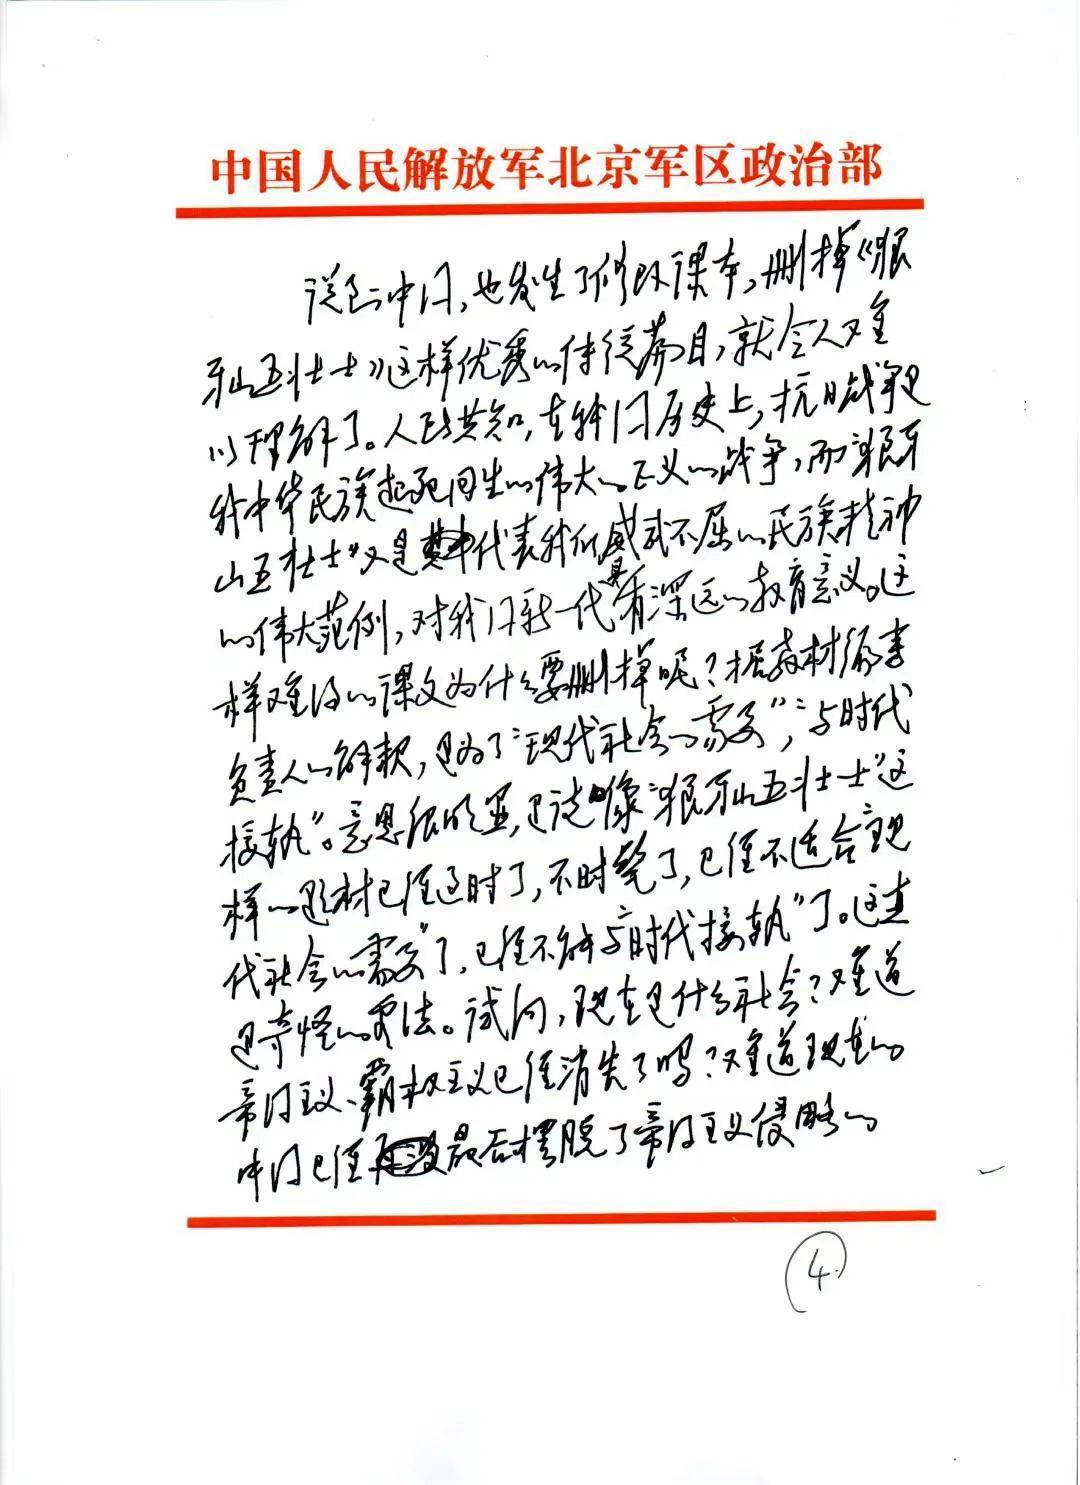 中国人民解放军北京军区政治部
说到中国，也发生了修改课本，删掉《狼
牙山五壮士》这样优秀的传统篇目，就令人难
以理解了。人民共知，在我国历史上，抗日战争是
我中华民族起死回生的伟大的正义的战争，而“狼牙
山五壮士”又是代表我们威武不屈的民族精神
的伟大范例，对我国新一代具有深远的教育意义。这
样难得的课文为什么要删掉呢？据教材编委
负责人的解释，是为了“现代社会的需要”，“与时代
接轨”。意思很明显，是说像“狼牙山五壮士”这
样的题材已经过时了，不时髦了，已经不适合“现
代社会的需要”了，已经不能“与时代接轨”了。这真
是奇怪的逻辑。试问，现在是什么社会？难道
帝国主义、霸权主义已经消失了吗？难道现在的
中国已经最后摆脱了帝国主义侵略的
4.